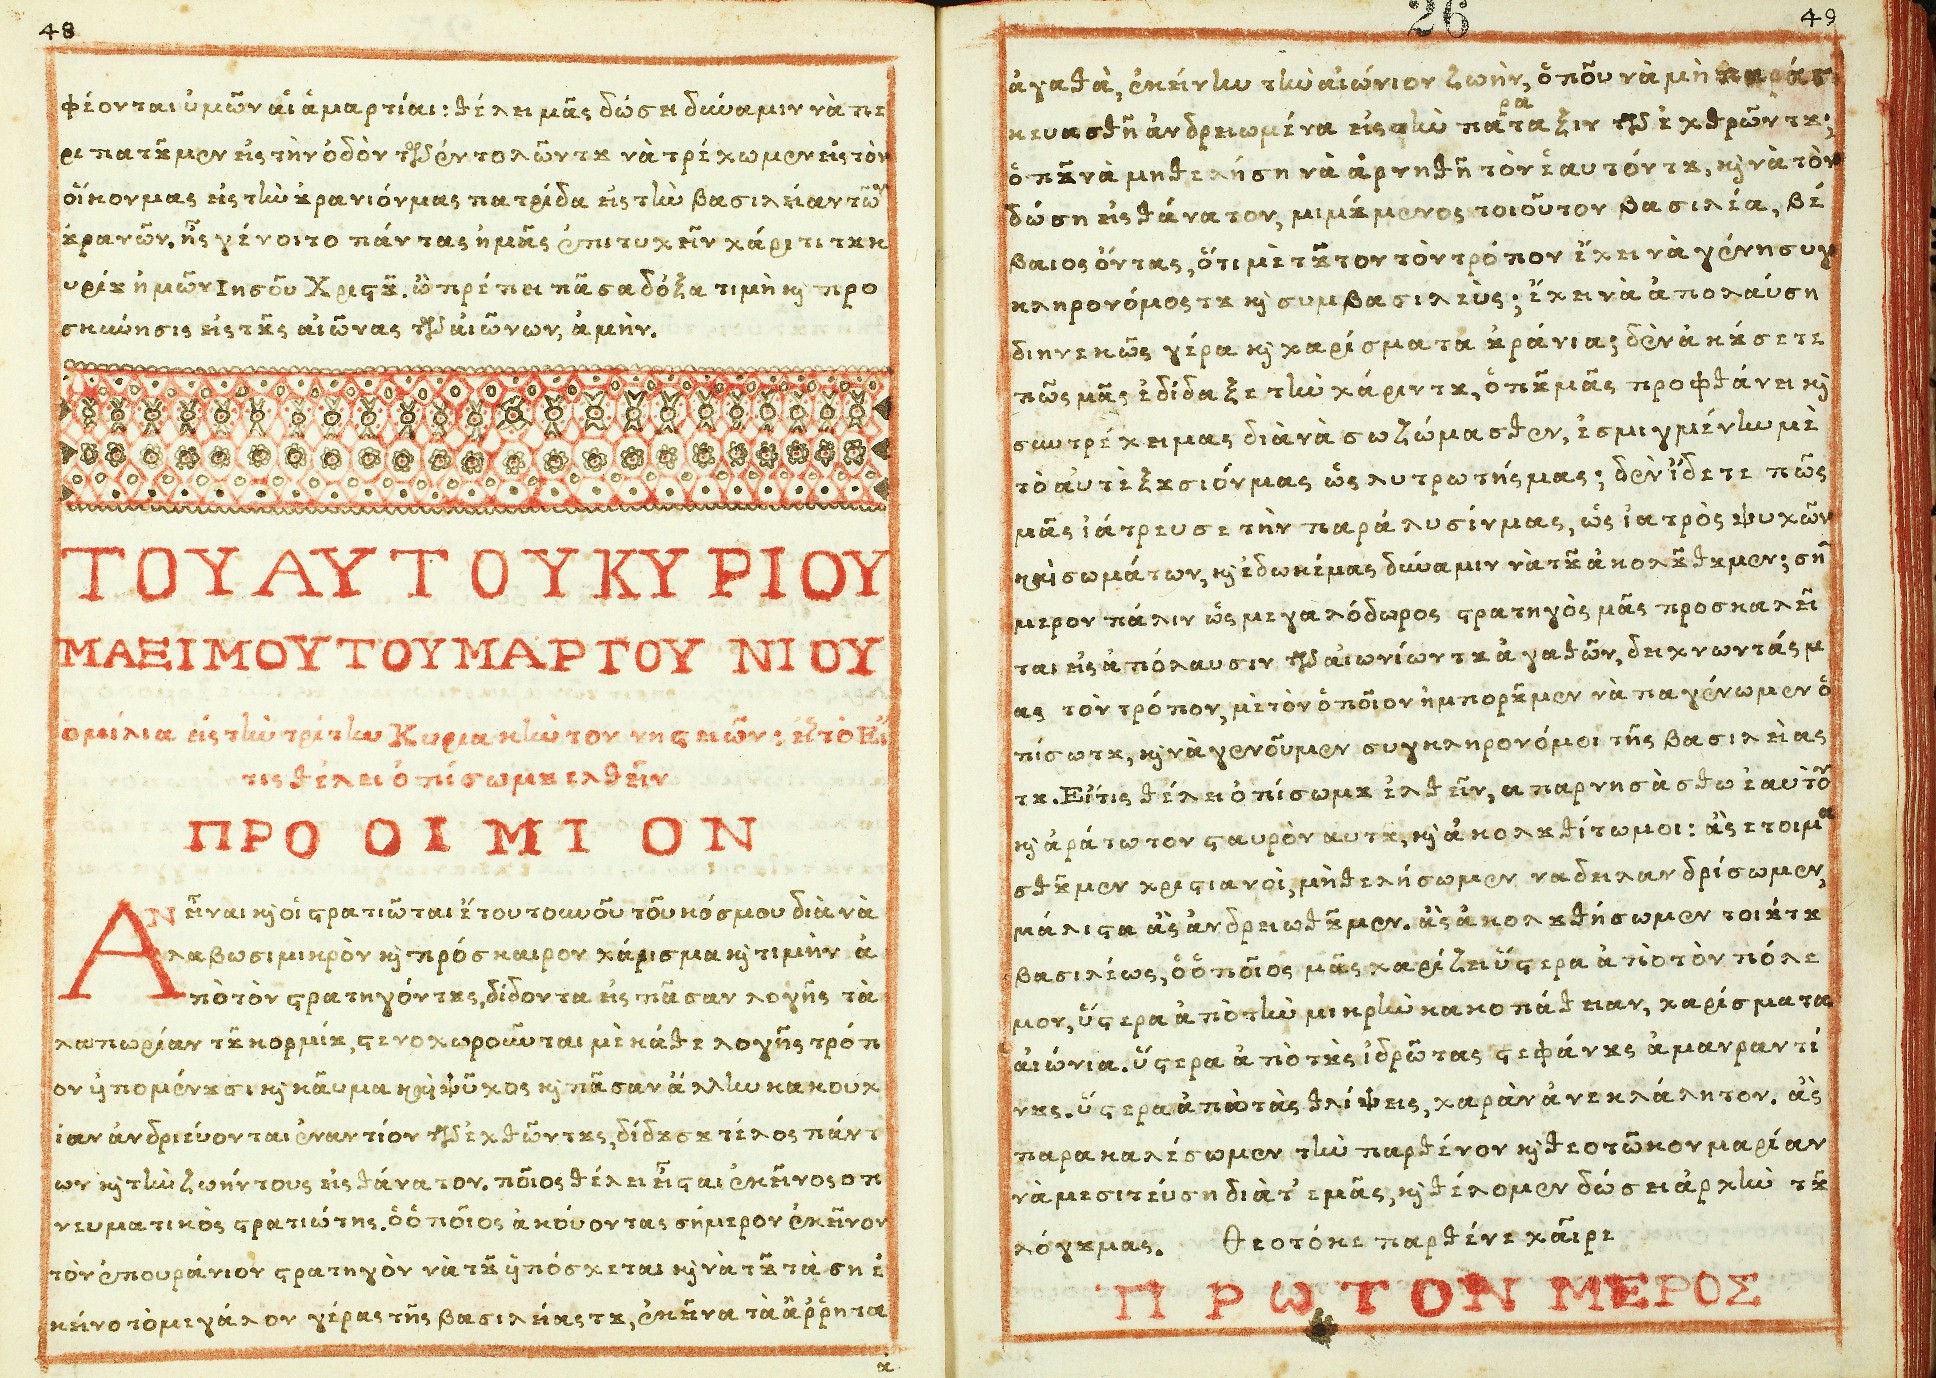 48
φέονται ὑμῶν αἱ ἁμαρτίαι: θέλει μᾶς δώσει δύναμιν νὰ πε
ρι πατοῦμεν εἰς τὴν ὁδὸν τῶν ἐντολῶν του νὰ τρέχωμεν εἰς τὸν
οἶκον μας εἰς τὴν οὐρανιόν μας πατρίδα εἰς τὴν βασιλείαν τῶν
οὐρανῶν, ἧς γένοιτο πάντας ἡμᾶς ἐπιτυχεῖν χάριτι του κ
υρίου ἡμῶν Ιησοῦ Χριστοῦ. ᾧ πρέπει πᾶσα δόξα τιμὴ καὶ προ
σκύνησις εἰς τοὺς αἰῶνας τῶν αἰώνων, ἀμὴν.
ΤΟΥ ΑΥΤΟΥ ΚΥΡΙΟΥ
ΜΑΞΙΜΟΥ ΤΟΥ ΜΑΡΤΟΥΝΙΟΥ
ομίλια εἰς τὴν τρίτην Κυριακὴν τον νηστειῶν: εἰς τὸ Εἴ
τις θέλει ὀπίσω μου ελθεῖν
ΠΡΟΟΙΜΙΟΝ
ΑΝ εἶναι καὶ οἱ στρατιῶται ἔτου τουνοῦ τοῦ κόσμου διὰ νὰ
λαβωσι μικρὸν καὶ πρόσκαιρον χάρισμα καὶ τιμὴν ἀ
πὸ τὸν στρατηγόν τους, δίδοντα εἰς πᾶσαν λογῆς τὰ
λαπωρίαν τοῦ κορμίου, στενοχωροῦνται μὲ κάθε λογῆς τρόπ
ον ὑπομένουσι καὶ καῦμα καὶ ψῦχος καὶ πᾶσαν ἄλλην κακουχ
ίαν ἀνδριεύονται ἐναντίον τῶν ἐχθῶν τους, δίδουσι τέλος πάντ
ων καὶ τὴν ζωήν τους εἰς θάνατον. ποῖος θέλει εἶσται ἐκεῖνος ο π
νευματικὸς στρατιώτης. ὁ ὁποῖος ἀκούοντας σήμερον ἐκεῖνον
τὸν ἐπουράνιον στρατηγὸν νὰ τοῦ ὑπόσχεται καὶ νὰ τοῦ τάση ἐ
κεῖνο τὸ μεγάλον γέρας τῆς βασιλείας του, ἐκεῖνα τὰ ἄῤῥητα
ἀ
26
49
ἀγαθὰ, ἐκείνην τὴν αἰώνιον ζωὴν, ὁποῦ νὰ μὴ παρας
κευασθῆ ἀνδρειωμένα εἰς τὴν παράταξιν τῶν ἐχθρῶν του;
ὁποῦ νὰ μη θελήση νὰ ἀρνηθῆ τὸν ἑαυτόν του, καὶ νὰ τὸν
δώση εἰς θάνατον, μιμούμενος τοιοῦτον βασιλέα, βέ
βαιος ὄντας, ὅτι μὲ τοῦτον τὸν τρόπον ἔχει νὰ γένη συγ
κληρονόμος του καὶ συμβασιλεὺς; ἔχει νὰ ἀπολαύση
διηνεκῶς γέρα καὶ χαρίσματα οὐράνια; δὲν ἀκούσετε
πῶς μᾶς ἐδίδαξε τὴν χάριν του, ὁποῦ μᾶς προφθάνει καὶ
συντρέχει μας διὰ νὰ σωζώμασθεν, ἐσμιγμένην μὲ
τὸ αυτὲξουσιόν μας ὡς λυτρωτής μας; δὲν ἴδετε πῶς
μᾶς ἰάτρευσε τὴν παράλυσίν μας, ὡς ἰατρὸς ψυχῶν
καὶ σωμάτων, καὶ ἐδωκέ μας δύναμιν νὰ τοῦ ἀκολουθοῦμεν; σή
μερον πάλιν ὡς μεγαλόδωρος στρατηγὸς μᾶς προσκαλεῖ
ται εἰς ἀπόλαυσιν τῶν αἰωνίων του ἀγαθῶν, δειχνωντάς μ
ας τὸν τρόπον, μὲ τὸν ὁποῖον ἠμποροῦμεν νὰ παγένωμεν ὀ
πίσω του, καὶ νὰ γενοῦμεν συγκληρονόμοι τῆς βασιλείας
του. Εἴτις θέλει ὀπίσω μου ἐλθεῖν, απαρνησὰσθω ἑαυτὸν
καὶ ἀράτω τον σταυρὸν αυτου, καὶ ἀκολουθίτω μοι: ἂς ετοιμα
σθοῦμεν χριστιανοὶ, μὴ θελήσωμεν να δειλανδρίσωμεν,
μάλιστα ἂς ἀνδρειωθοῦμεν. ἂς ἀκολουθήσωμεν τοιούτου
βασιλέως, ὁ ὁποῖος μᾶς χαρίζει ὕστερα ἀπὸ τὸν πόλε
μον, ὕστερα ἀπὸ τὴν μικρὴν κακοπάθειαν, χαρίσματα
αἰώνια. ὕστερα ἀπὸ τοὺς ἱδρῶτας στεφάνους ἀμαυραντί
νους. ὕστερα ἀπὸ τὰς θλίψεις, χαρὰν ἀνεκλάλητον. ἂς
παρακαλέσωμεν τὴν παρθένον καὶ θεοτῶκον μαρίαν
νὰ μεσιτεύση διὰ τ' εμᾶς, καὶ θέλομεν δώσει ἀρχὴν τοῦ
λόγου μας. Θεοτόκε παρθένε χαῖρε
ΠΡΩΤΟΝ ΜΕΡΟΣ